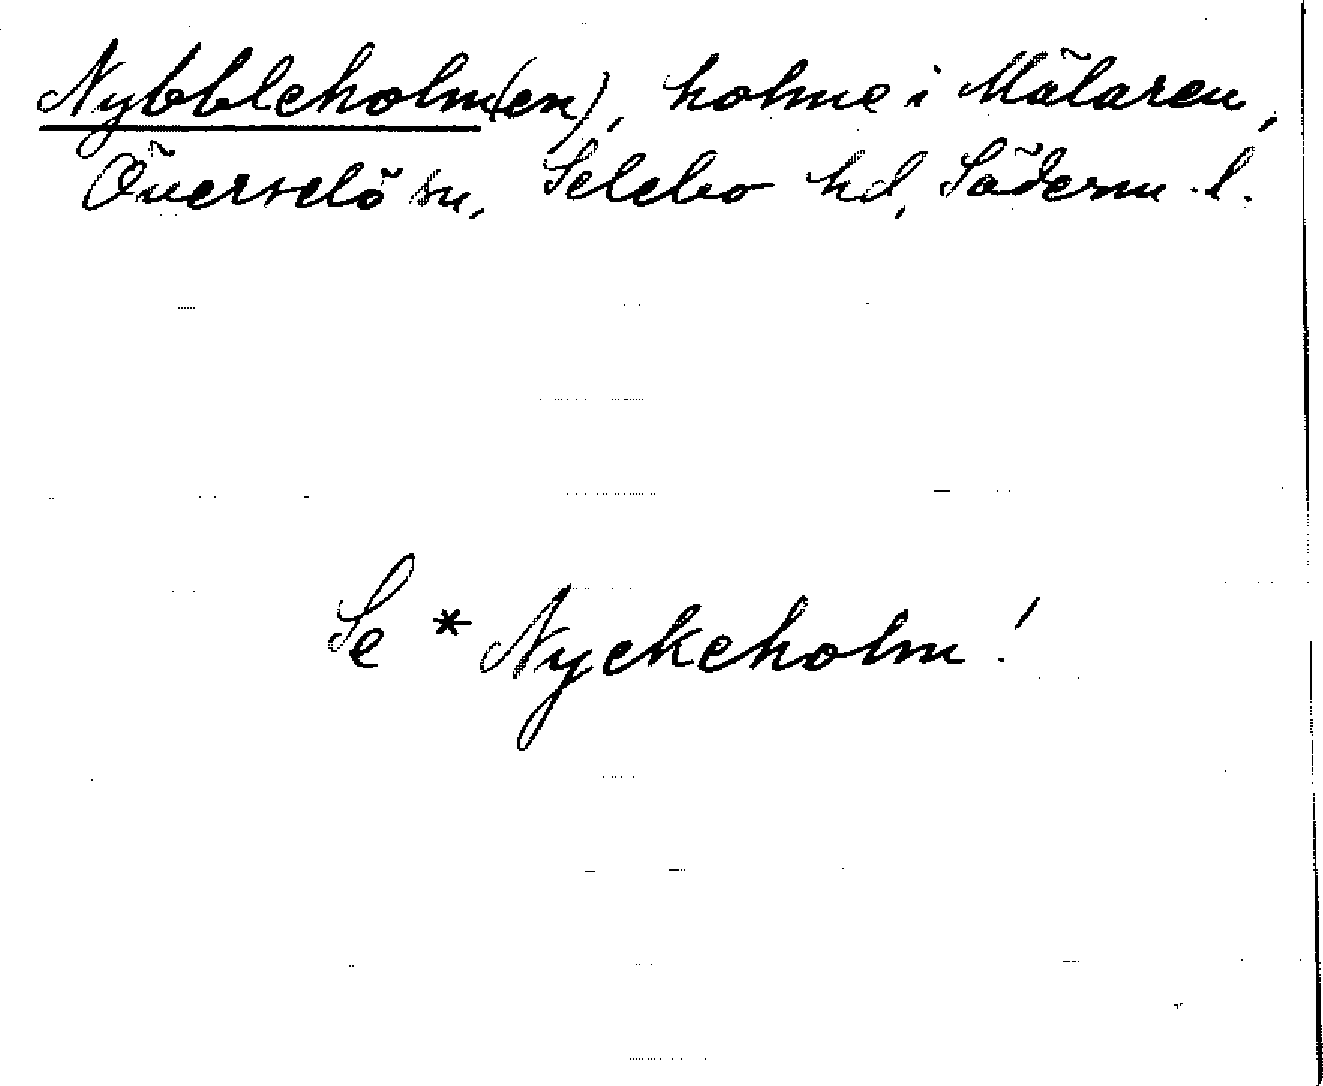 Nybbleholm(en), holme i Mälaren,
Överselö sn, Selebo hd, Söderm. l.
Se * Nyckeholm!